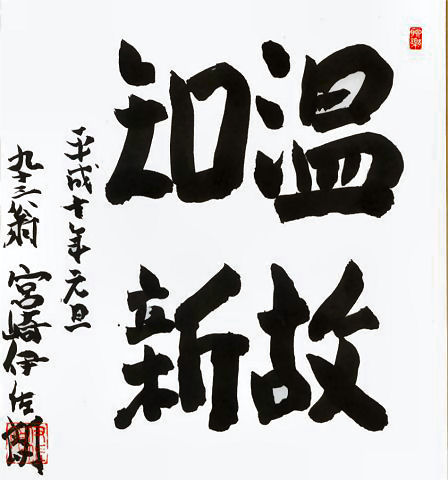 温故
知新
平成七年元旦
九十三翁 宮崎伊佐朗